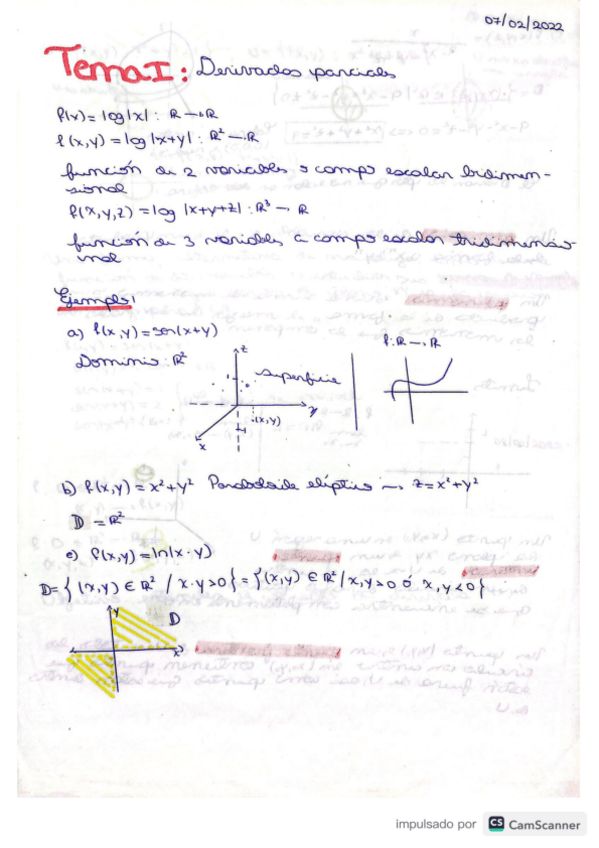 07/02/2022
Tema I: Derivadas parciales
f(x) = log|x| : R → R
f(x,y) = log|x+y| : R² → R
función de 2 variables o campo escalar bidimen-
sional
f(x,y,z) = log|x+y+z| : R³ → R
función de 3 variables o campo escalar tridimensio-
nal
Ejemplo
a) f(x,y) = sen(x+y)
Dominio: R²
z
superficie
y
(x,y)
x
f: R → R
b) f(x,y) = x²+y² Paraboloide elíptico → z = x²+y²
D = R²
c) f(x,y) = ln(x·y)
D = {(x,y) ∈ R² / x·y>0} = {(x,y) ∈ R² / x,y>0 ó x,y<0}
y
D
x
impulsado por CS CamScanner